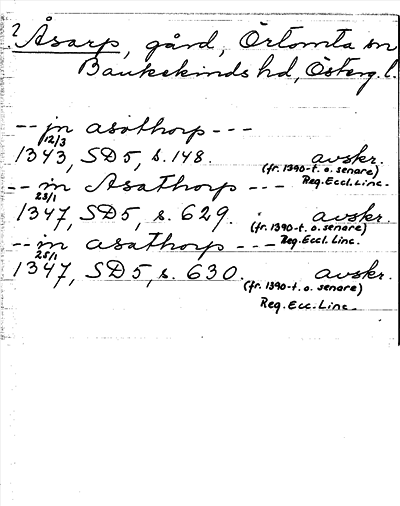 ? Åsarp, gård, Örtomta sn
Bankekinds hd, Österg.l.
-- in asathorp ---
12/3
1343, SD5, s.148. avskr.
(fr. 1390-t. o. senare)
Reg. Eccl. Linc.
-- in Asathorp ---
23/1
1347, SD5, s. 629. avskr.
(fr. 1390-t. o. senare)
Reg. Eccl. Linc.
-- in asathorp ---
25/1
1347, SD5, s. 630. avskr.
(fr. 1390-t. o. senare)
Reg. Ecc. Linc.